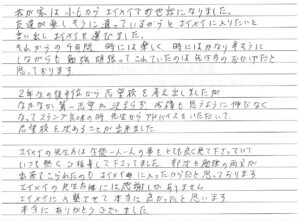 我が家は小6からエイメイでお世話になりました。
友達が楽しそうに通っているからとエイメイに入りたいと
言い出しエイメイを選びました。
それからの4年間 時には楽しく 時にはかなり辛そうに
しながらも勉強頑張ってこれていたのは先生方のおかげだと
思っております。
2年生の後半位から志望校を考え出しましたが
なかなか第一志望が決まらず 成績も思うように伸びなく
なってスランプ気味の時、先生からアドバイスをいただいて、
志望校を決めることが出来ました。
エイメイの先生方は生徒一人一人の事をとても良く見て下さっていて
いつも熱くご指導して下さってました。部活と勉強の両立が
出来てこられたのもエイメイに入ったからだと思っております
エイメイの先生方には感謝しかありません
エイメイに入塾させて本当に良かったと思います。
本当にありがとうございました。